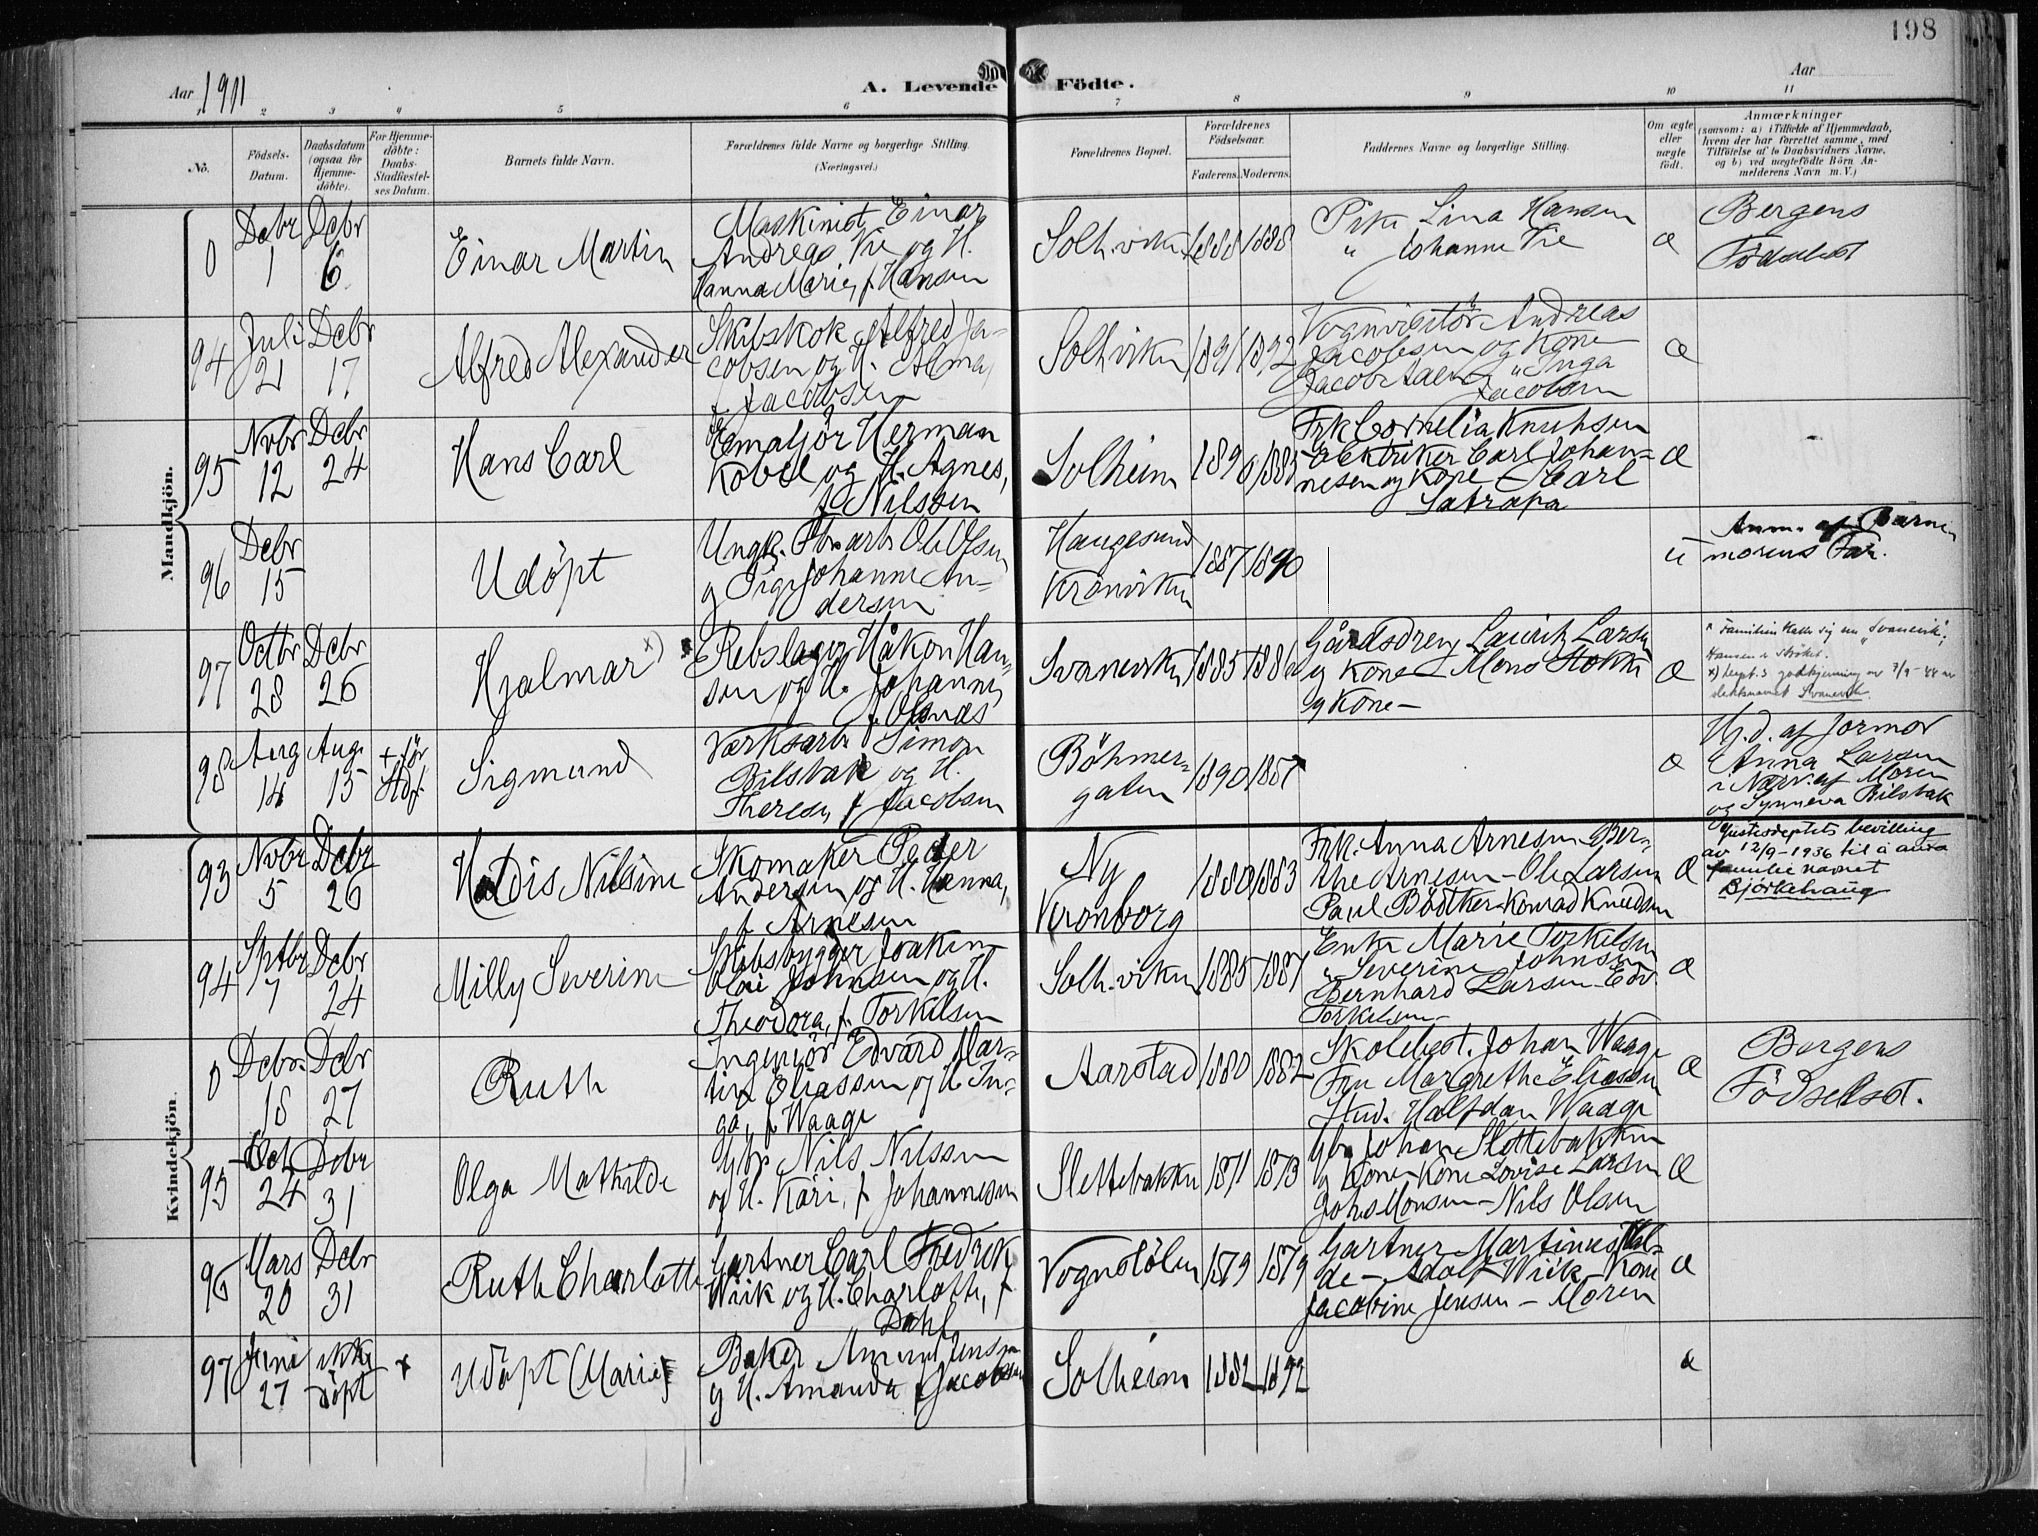 198
Aar 1911
A. Levende Födte.
Aar
1 2 3 4 5 6 7 8 9 10 11
No.
Födsels-Datum.
Daabsdatum (ogsaa for Hjemmedöbte).
For Hjemmedöbte: Daabs-Stadfæstelses Datum.
Barnets fulde Navn.
Forældrenes fulde Navne og borgerlige Stilling. (Næringsvei.)
Forældrenes Bopæl.
Forældrenes Födselsaar.
Faderens. Moderens.
Faddernes Navne og borgerlige Stilling.
Om ægte eller uægte født.
Anmærkninger
(saasom: a) i Tilfælde af Hjemmedaab, hvem der har forrettet samme, med Tilföielse af to Daabsvidners Navne, og b) ved uægtefödte Börn Anmelderens Navn m. V.)
Mandkjön.
0
Debr 1
Debr 6
Einar Martin
Maskinist Einar
Andreas Vie og H.
Hanna Marie, f Hansen
Solh.viken
1888 1888
Pike Lina Hansen
" Johanne Vie
æ
Bergens
Födselsst
94
Juli 21
Debr 17
Alfred Alexander
Skibskok Alfred Ja-
cobsen og H. Alma,
f Jacobsen
Solhviken
1891 1892
Vognvisitör Andreas
Jacobsen og Kone
Jacob Aalen " Inga
Jacobsen
æ
95
Nvbr 12
Debr 24
Hans Carl
Emaljör Herman
Kobel og H. Agnes,
f Nilssen
Solheim
1890 1885
Frk Cornelia Knutsen
Elektriker Carl Johan-
nesen og Kone - Carl
Satrapa
æ
96
Debr 15
Udöpt
Ungk. Fbr.arb. Ole Olsen
og Pige Johanne An-
dersen
Haugesund
Kronviken
1887 1890
u
Anm. af Barne
morens Far.
97
Octbr 28
Debr 26
Hjalmar x)
Rebslager Håkon Han-
sen og H. Johanne,
f Olsnes
Svaneviken
1885 1886
Gårdsdreng Lauritz Larsen
og Kone - Mons Stokke
og Kone -
æ
Familien kaller sig nu "Svanevik";
Hansen er strøket.
98
Aug 14
Aug 15
+ för Stdf
Sigmund
Værksarb Simon
Bilsbak og H.
Therese, f Jacobsen
Böhmer-
gaten
1890 1887
æ
H.d. af Jormor
Anna Larsen
i Nærv. af Moren
og Synneva Bilsbak
Kvindekjön.
93
Nvbr 5
Debr 26
Haldis Nilsine
Skomaker Peder
Andersen og H. Hanna,
f Arnesen
Ny
Kronborg
1880 1883
Frk. Anna Arnesen Ber-
the Arnesen - Ole Larsen
Paul Bödtker - Konrad Knudsen
æ
Justisdeptets bevilling
av 12/9-1936 til å anta
familienavnet
Björkehaug
94
Sptbr 7
Debr 24
Milly Severine
Skibsbygger Joakim
Olai Johnsen og H.
Theodora, f. Torkilsen
Solh.viken
1885 1887
Enke Marie Torkilsen
" Severine Johnsen
Bernhard Larsen - Edv.
Torkilsen -
æ
0
Debr. 18
Debr 27
Ruth
Ingeniör Edvard Mar-
tin Eliassen og H In-
ga, f Waage
Aarstad
1880 1882
Skolebest. Johan Waage
Fru Margrethe Eliassen
Stud. Halfdan Waage
æ
Bergens
Födselsst.
95
Oct 24
Debr 31
Olga Mathilde
Gbr Nils Nilssen
og H. Kari, f Johannesen
Slettebakken
1871 1873
Gbr Johan Slettebakken
og Kone - Kone Lovise Larsen
Johs Monsen - Nils Olsen
æ
96
Mars 20
Debr 31
Ruth Charlotte
Gartner Carl Fredrik
Wiik og H. Charlotte, f
Dahl
Vognstölen
1879 1879
Gartner Martinus Val-
de - Adolf Wiik - Kone
Jacobine Jensen - Moren
æ
97
Juni 27
ikke döpt
+
Udöpt (Marie)
Baker Amund Jensen
og H. Amanda f Jacobsen
Solheim
1882 1892
æ